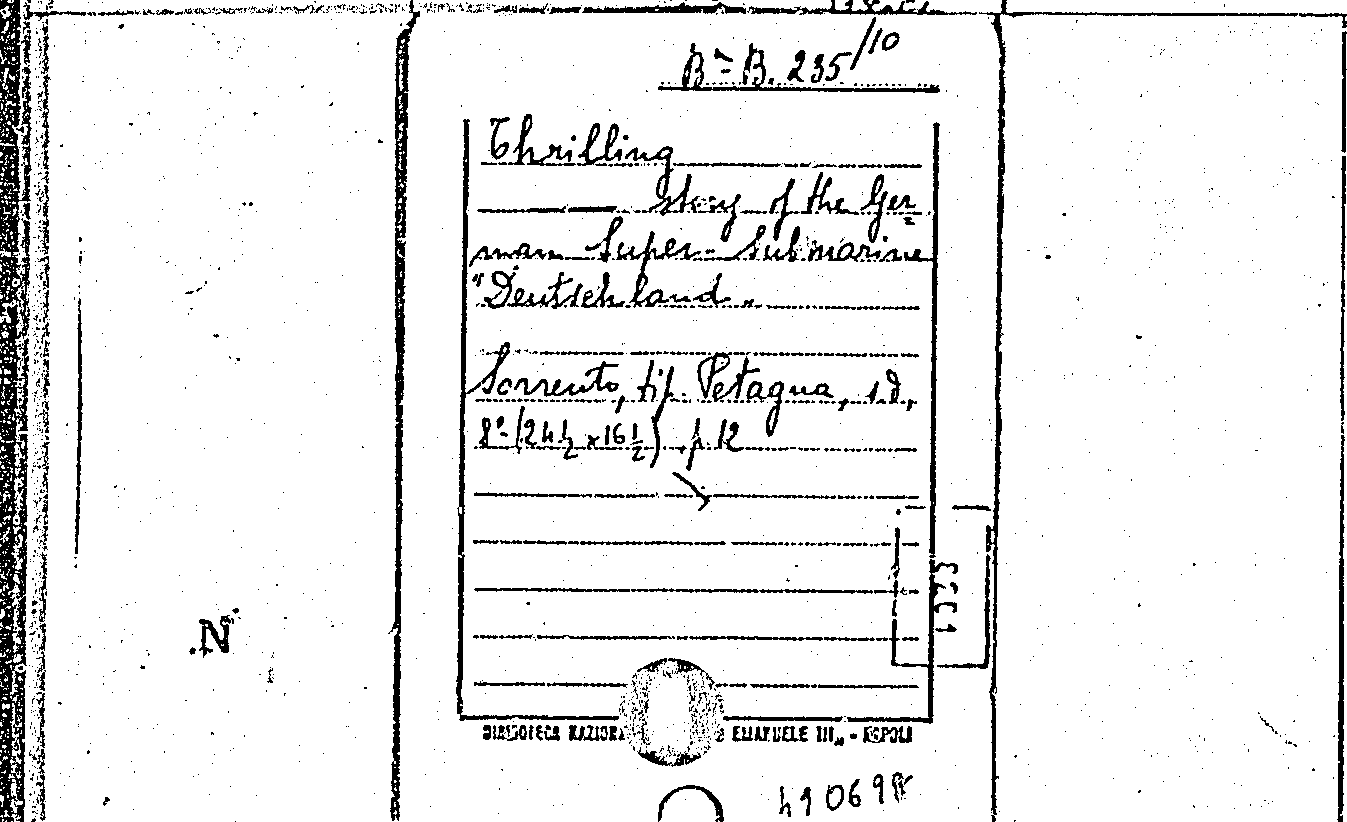 B=B. 235/10
Thrilling
——— Story of the Ger=
man Super-Submarine
"Deutschland"
Sorrento, tip. Petagna, s.d,
8°-(24½ x 16½), p. 12
N
BIBLIOTECA NAZIONA EMANUELE III„ - NAPOLI